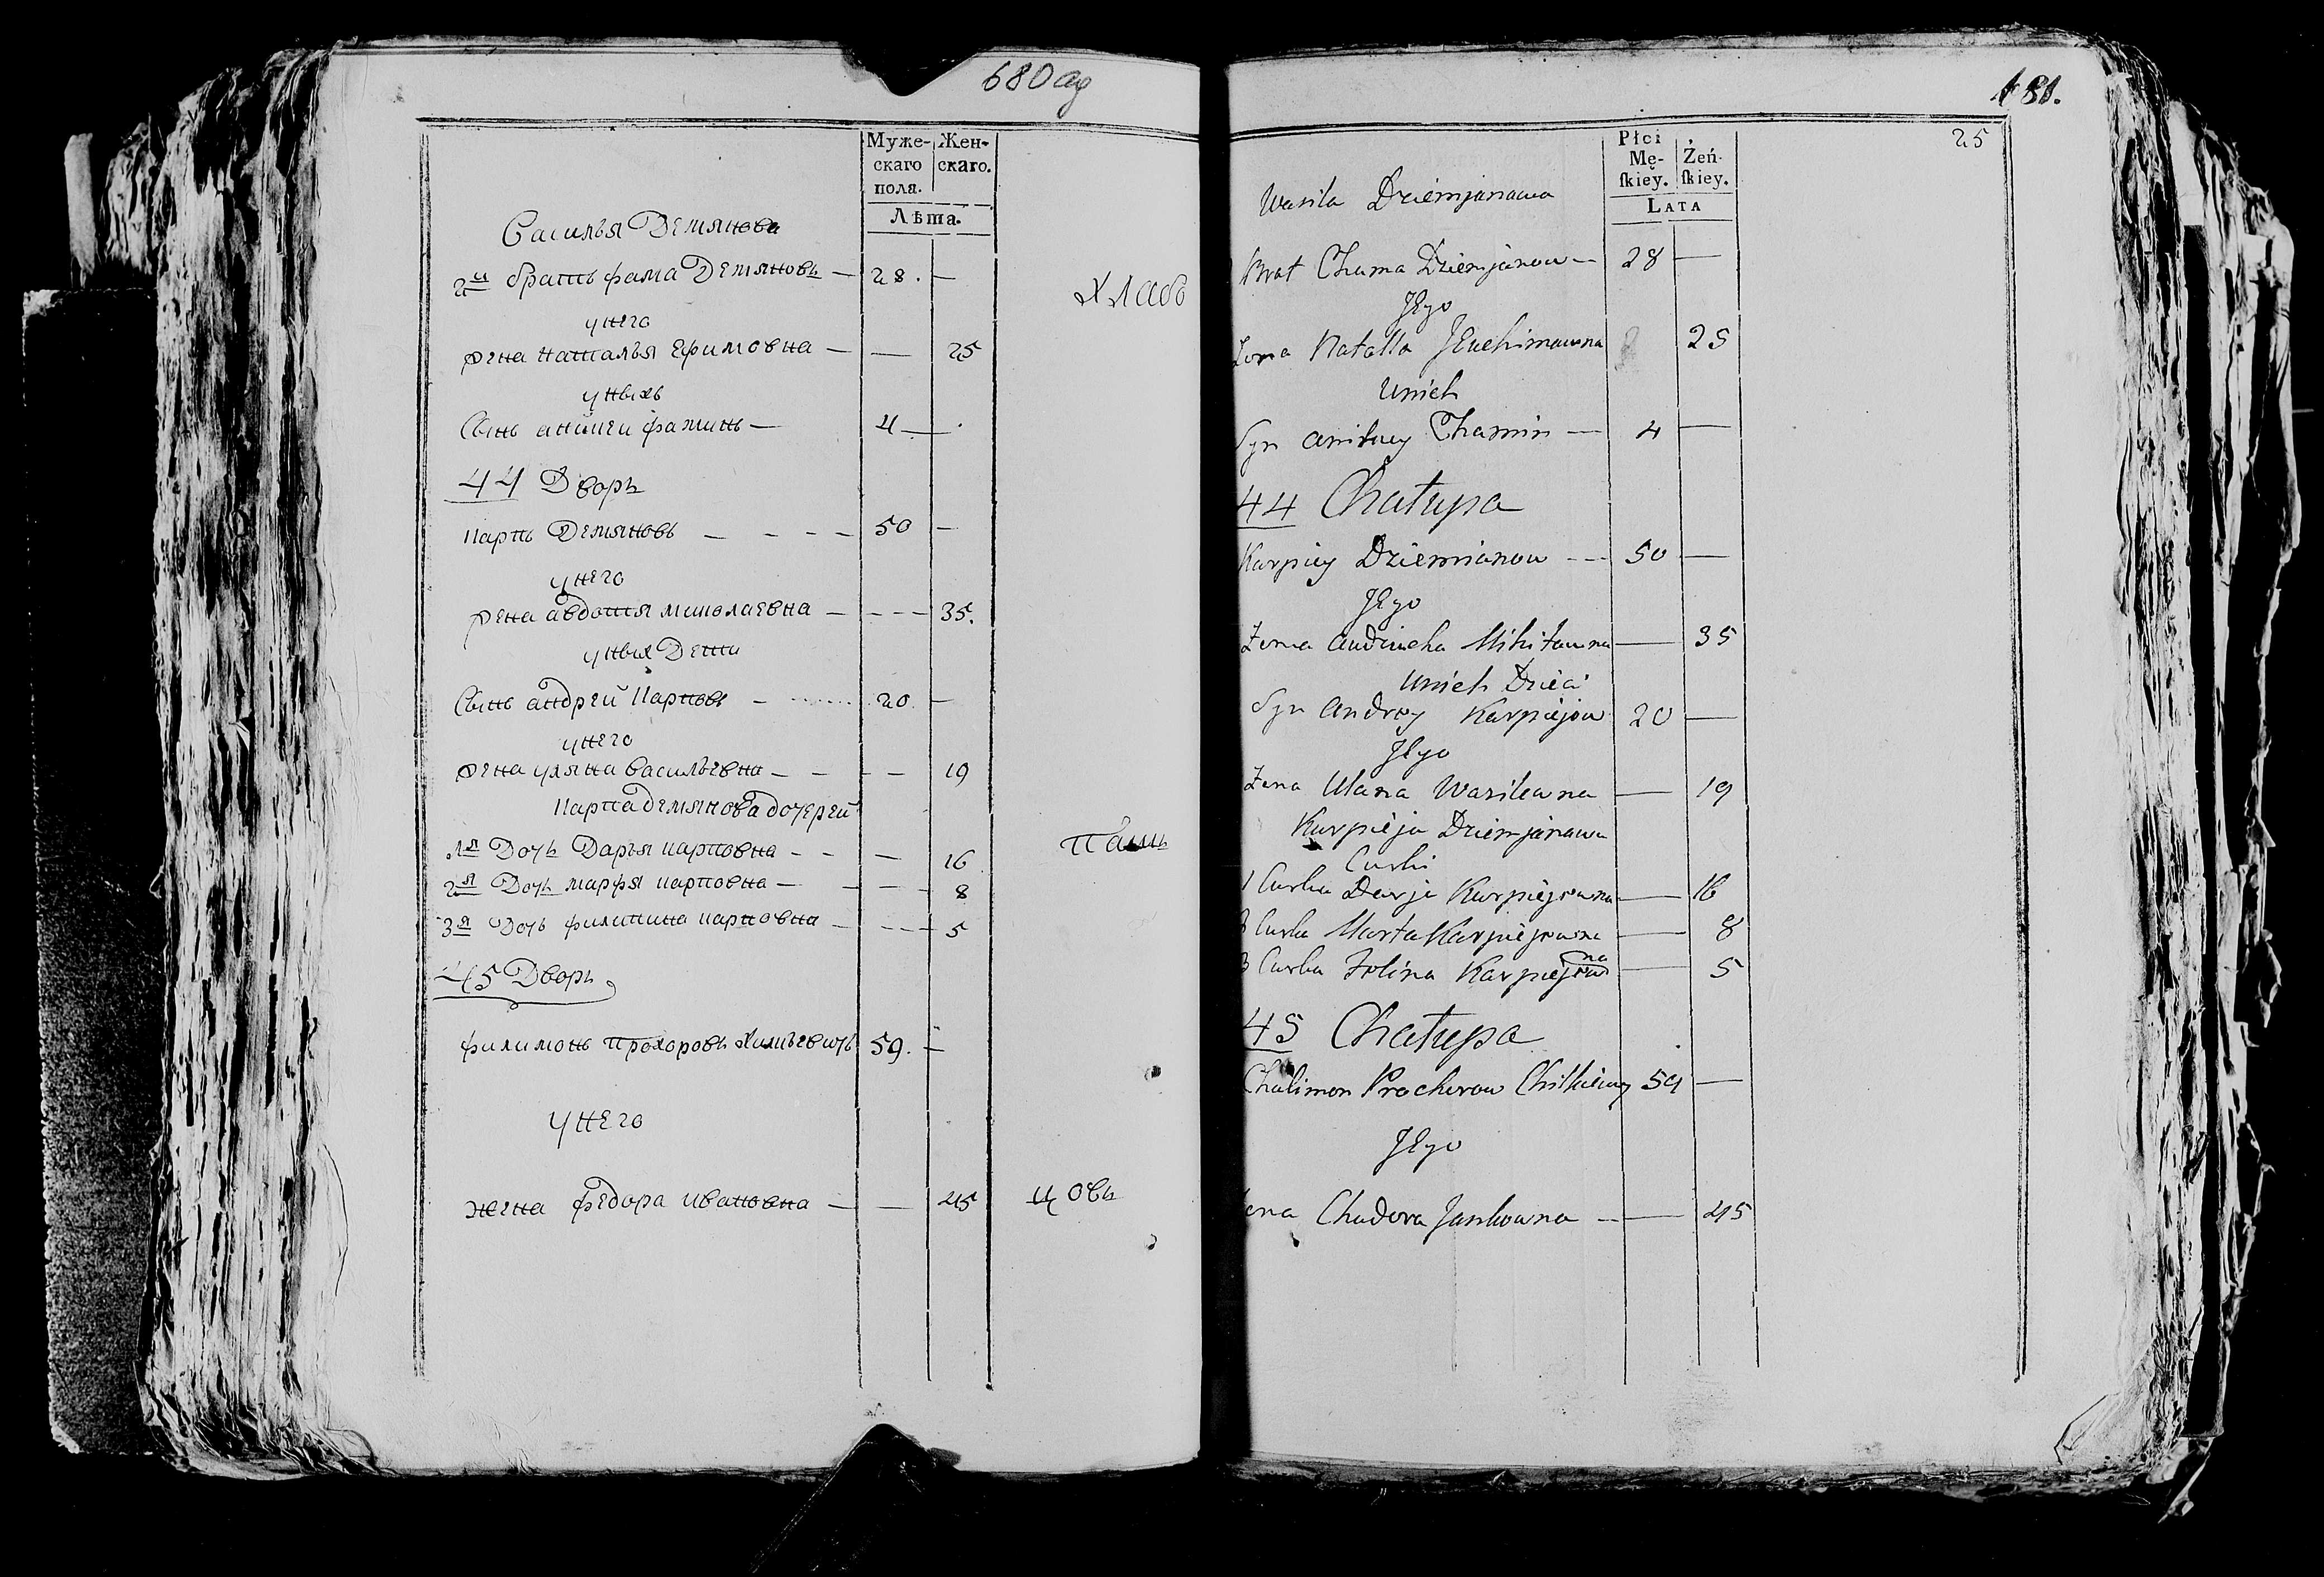 680 об
Муже-
скаго
пола.
Жен-
скаго.
Лѣта.
Василья Демянова
2й братъ фама Демяновъ — 28. —
унего
жена наталья Ефимовна — — 25
уныхъ
Сынъ аникеи фаминъ — 4 —
44 Дворъ
Карпъ Демяновъ — 50 —
унего
жена авдотя миколаевна — 35.
уных Дети
Сынъ андрей Карповъ — 20. —
унего
жена уляна васильевна — — 19
Карпа демянова дочерей
1я Дочь Дарья карповна — — 16
2я Дочь марфя карповна — — 8
3я Дочь филипина карповна — — 5
45 Дворъ
филимонъ прохоровъ Хилькевичъ 59. —
унего
жена федора ивановна — — 45
хлаб
цовъ
181.
25
Płci
Mę-
skiey.
Żeń-
skiey.
LATA
Wasila Dziemjanawa
Brat Chama Dziemjanow — 28 —
Jego
Żona Natalla Jeuchimawna 25
Unich
Syn Anikiey Chamin — 4 —
44 Chałupa
Karpiey Dziemianow — 50 —
Jego
Żona Audzincha Mikitawna — 35
Unich Dzieci
Syn Andrey Karpiejow 20 —
Jego
Żena Ulana Wasilewna — 19
Karpieja Dziemjanawa
Curki
1 Curka Darja Karpiejowna — 16
2 Curka Marta Karpiejowna — 8
3 Curka Folina Karpiejowna — 5
45 Chałupa
Chalimon Procherow Chilkiewicz 59 —
Jego
Żena Chadora Jankowna — 45